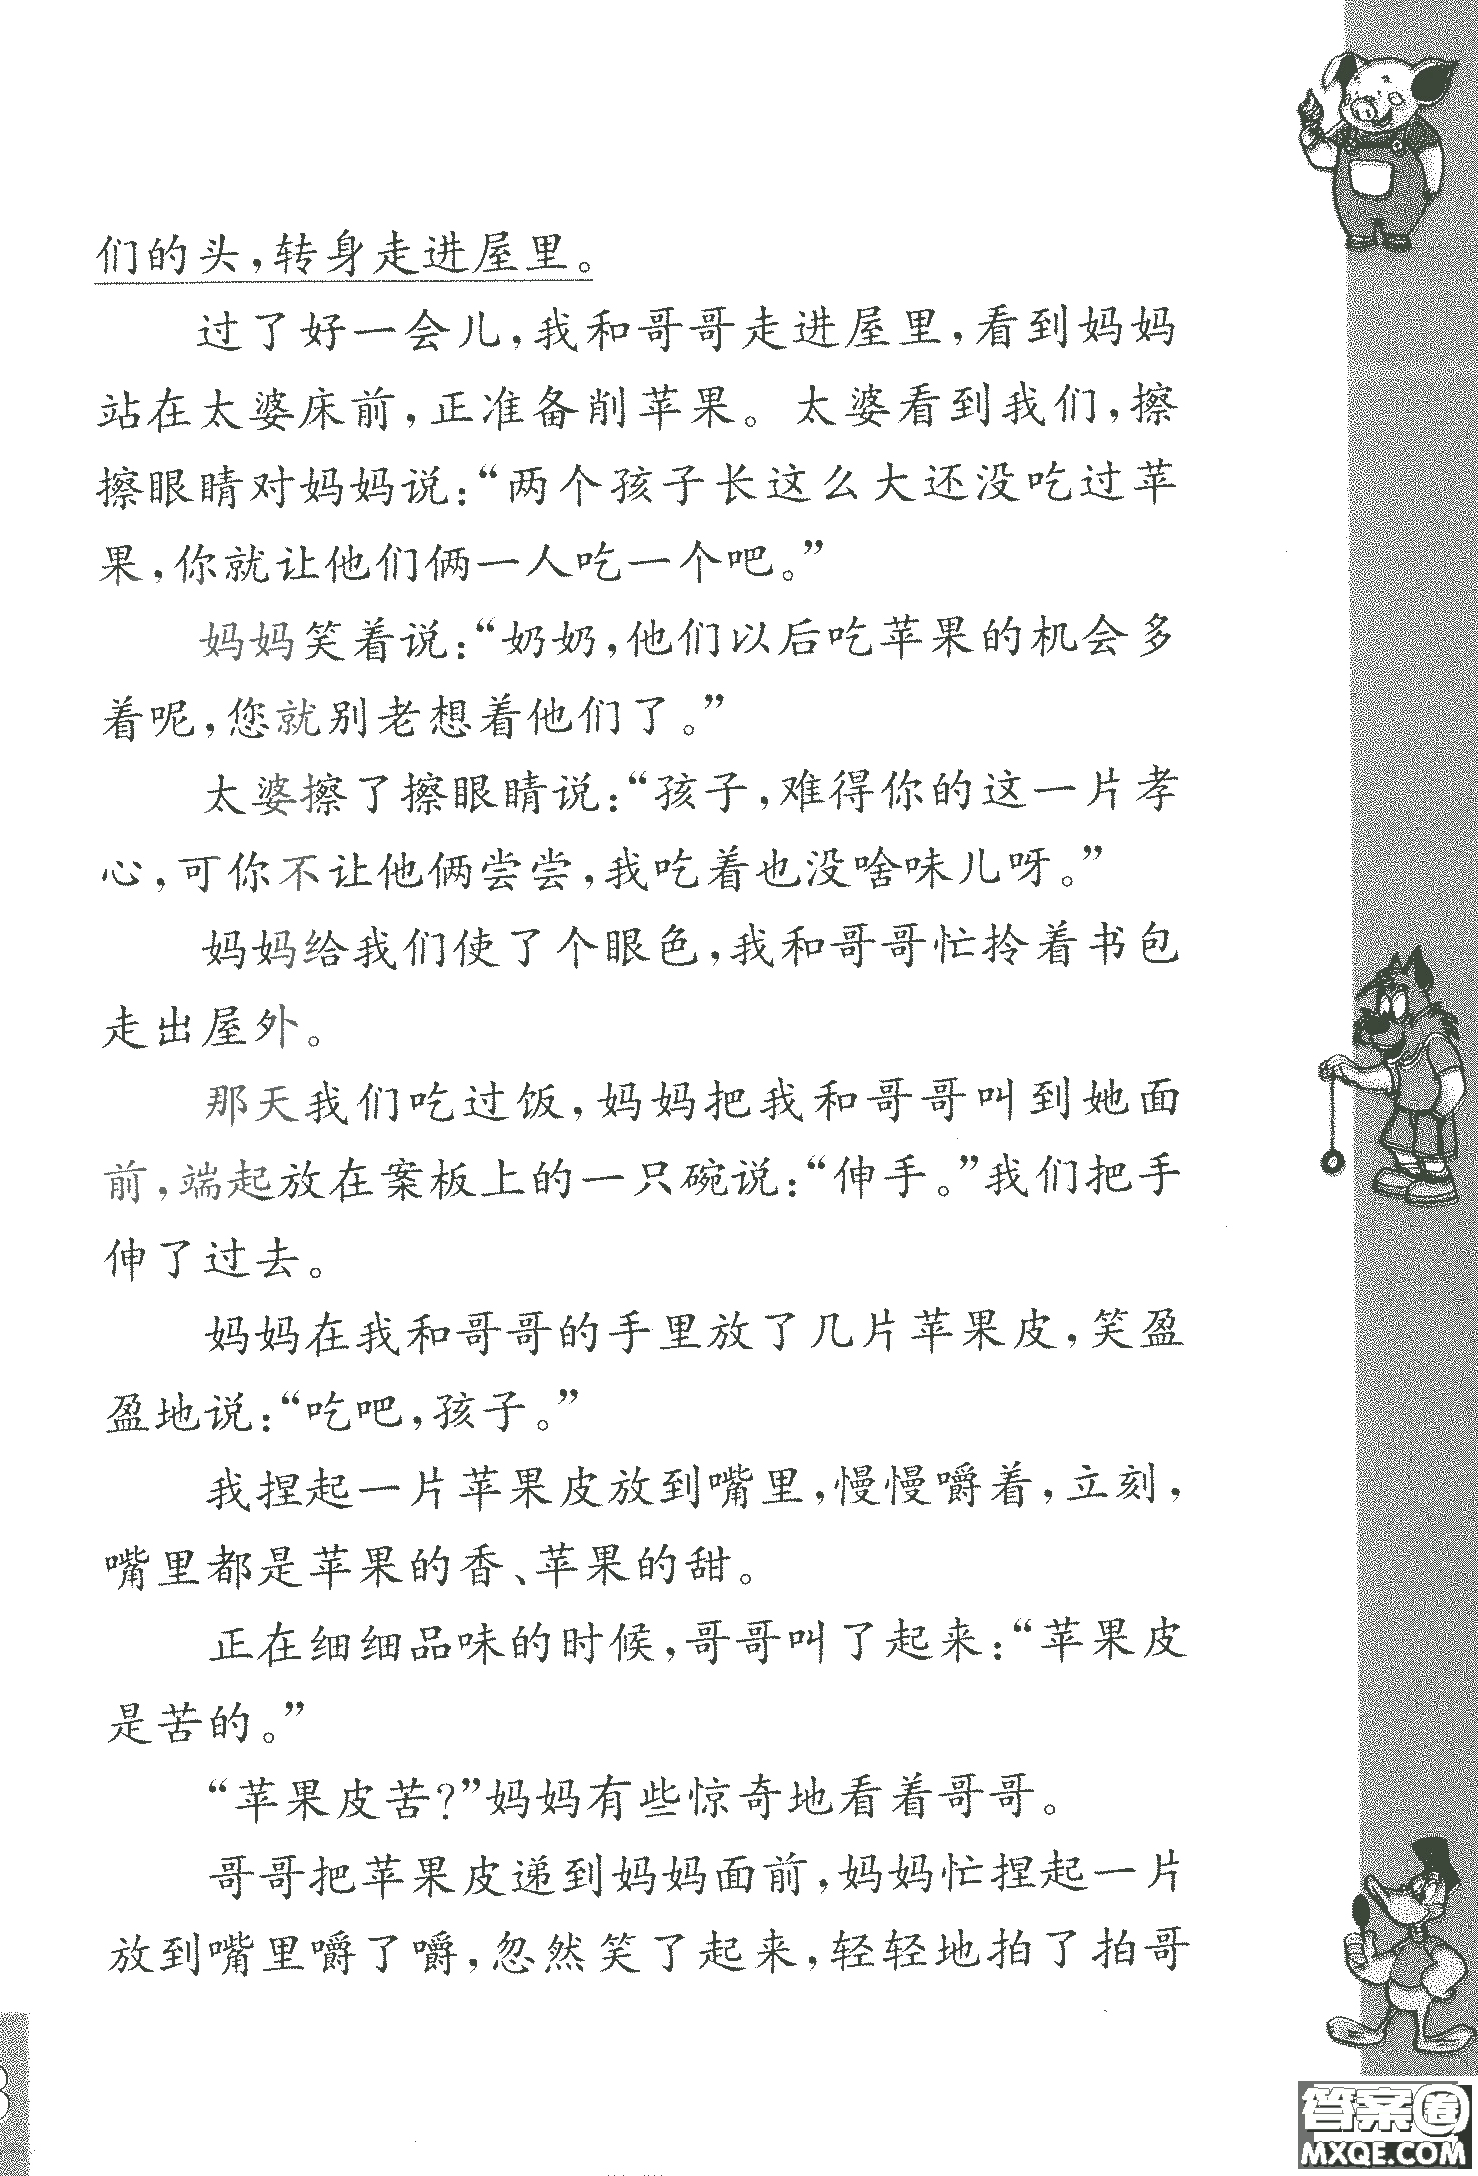 们的头，转身走进屋里。
过了好一会儿，我和哥哥走进屋里，看到妈妈
站在太婆床前，正准备削苹果。太婆看到我们，擦
擦眼睛对妈妈说：“两个孩子长这么大还没吃过苹
果，你就让他们俩一人吃一个吧。”
妈妈笑着说：“奶奶，他们以后吃苹果的机会多
着呢，您就别老想着他们了。”
太婆擦了擦眼睛说：“孩子，难得你的这一片孝
心，可你不让他俩尝尝，我吃着也没啥味儿呀。”
妈妈给我们使了个眼色，我和哥哥忙拎着书包
走出屋外。
那天我们吃过饭，妈妈把我和哥哥叫到她面
前，端起放在案板上的一只碗说：“伸手。”我们把手
伸了过去。
妈妈在我和哥哥的手里放了几片苹果皮，笑盈
盈地说：“吃吧，孩子。”
我捏起一片苹果皮放到嘴里，慢慢嚼着，立刻，
嘴里都是苹果的香、苹果的甜。
正在细细品味的时候，哥哥叫了起来：“苹果皮
是苦的。”
“苹果皮苦？”妈妈有些惊奇地看着哥哥。
哥哥把苹果皮递到妈妈面前，妈妈忙捏起一片
放到嘴里嚼了嚼，忽然笑了起来，轻轻地拍了拍哥
答案圈
MXQE.COM